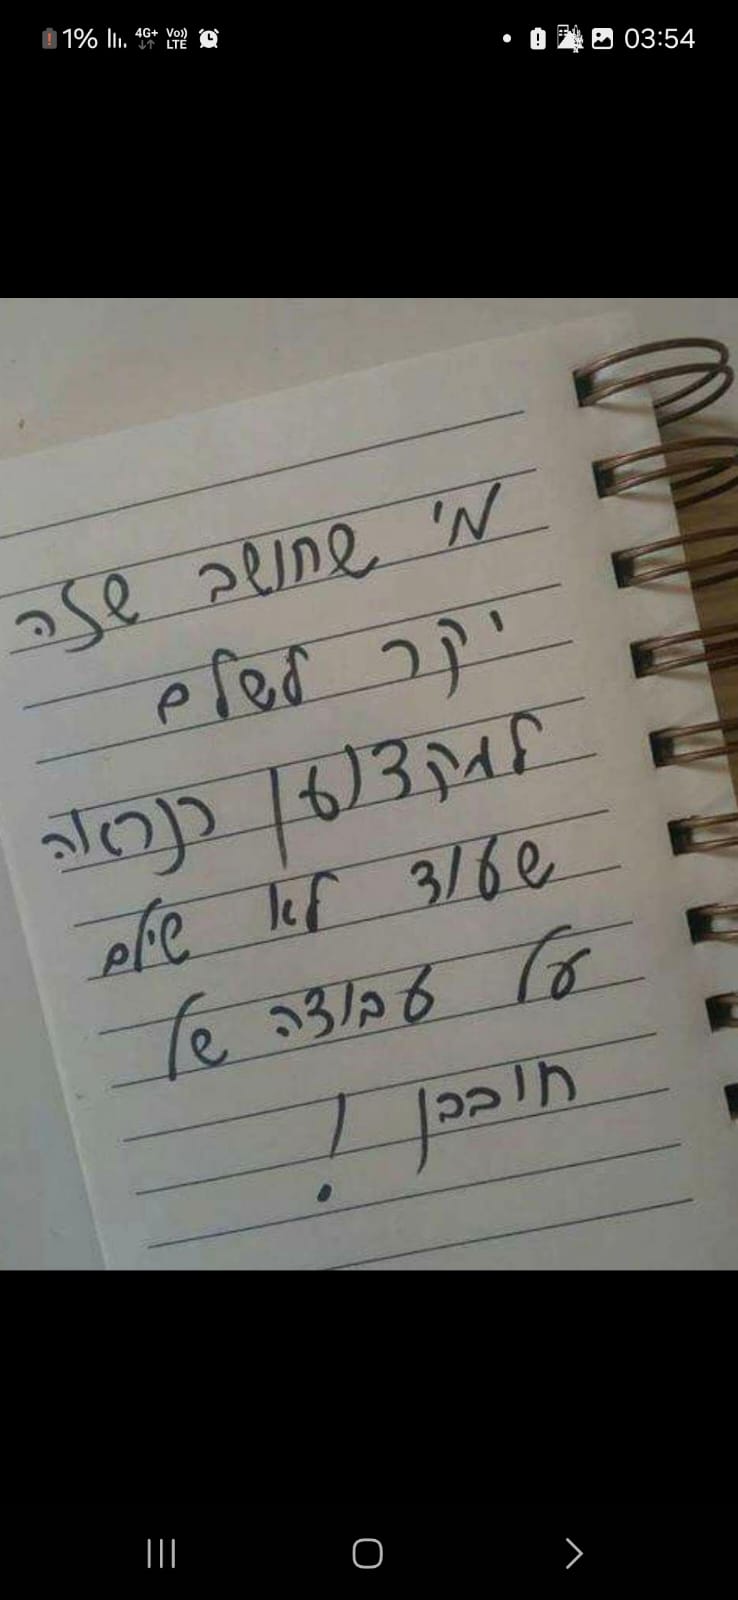 1% 4G+ Vo)) LTE 03:54
מי שחושב שזה
יקר לשלם
למקצוען כנראה
שעוד לא שילם
על עבודה של
חובבן !